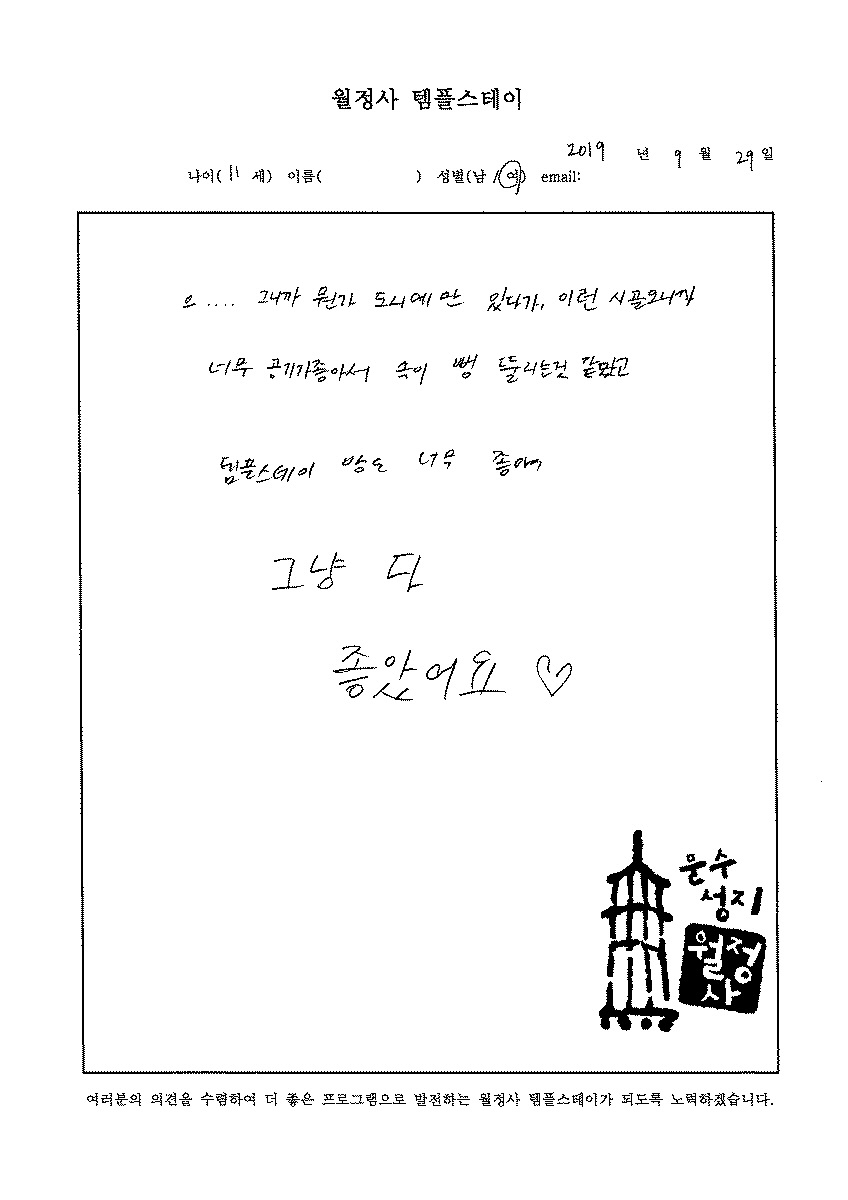 월정사 템플스테이
2019 년 9 월 29 일
나이( 11 세) 이름( ) 성별(남 / 여) email:
으.... 그니까 뭔가 도시에만 있다가, 이런 시골오니까
너무 공기가좋아서 속이 뻥 뚤리는것 같았고
템플스테이 방도 너무 좋아서
그냥 다
좋았어요 ♡
문수
성지
월정
사
여러분의 의견을 수렴하여 더 좋은 프로그램으로 발전하는 월정사 템플스테이가 되도록 노력하겠습니다.